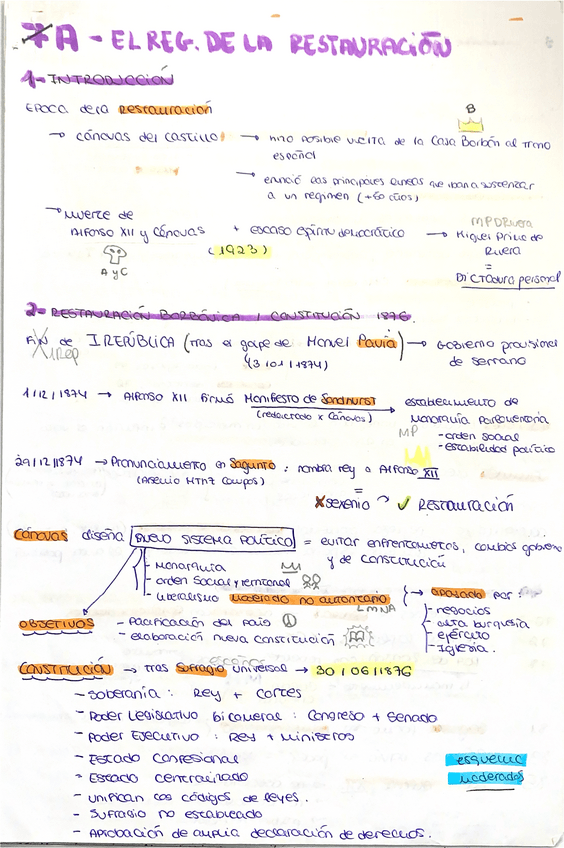 7A - EL REG. DE LA RESTAURACIÓN
1- INTRODUCCIÓN
EPOCA de la Restauración
B
→ Cánovas del Castillo → hizo posible vuelta de la Casa Borbón al trono
español
→ enunció las principales líneas que iban a sustentar
a un regimen (+60 años)
→ Muerte de
Alfonso XII y Cánovas + escaso espíritu democrático → Miguel Primo de
Rivera
MPDRivera
(1923)
A y C
=
Dictadura personal
2- RESTAURACIÓN BORBÓNICA / CONSTITUCIÓN 1876
Fin de I REPÚBLICA (tras el golpe de Manuel Pavía) → Gobierno provisional
de Serrano
1Rep
(3/01/1874)
1/12/1874 → Alfonso XII firmó Manifiesto de Sandhurst → establecimiento de
(redactado x Cánovas) monarquía parlamentaria
MP
- orden social
- estabilidad política
29/12/1874 → Pronunciamiento en Sagunto : nombra rey a Alfonso XII
(Arsenio Mtnz Campos)
=
X sexenio ✓ RESTAURACIÓN
Cánovas diseña NUEVO SISTEMA POLÍTICO = evitar enfrentamientos, cambios gobierno
y de Constitución
- Monarquía
- orden social y territorial
- liberalismo moderado no autoritario → apoyado por:
LMNA
- negocios
- alta burguesía
- ejército
- Iglesia.
OBJETIVOS - Pacificación del país
- elaboración nueva constitución
CONSTITUCIÓN → tras sufragio universal → 30/06/1876
- Soberanía : Rey + Cortes
- Poder Legislativo bicameral : Congreso + Senado
- Poder Ejecutivo : Rey + ministros
- Estado Confesional
- Estado centralizado
- unifican los códigos de leyes.
- Sufragio no establecido
- Aprobación de amplia declaración de derechos.
esquema
moderados